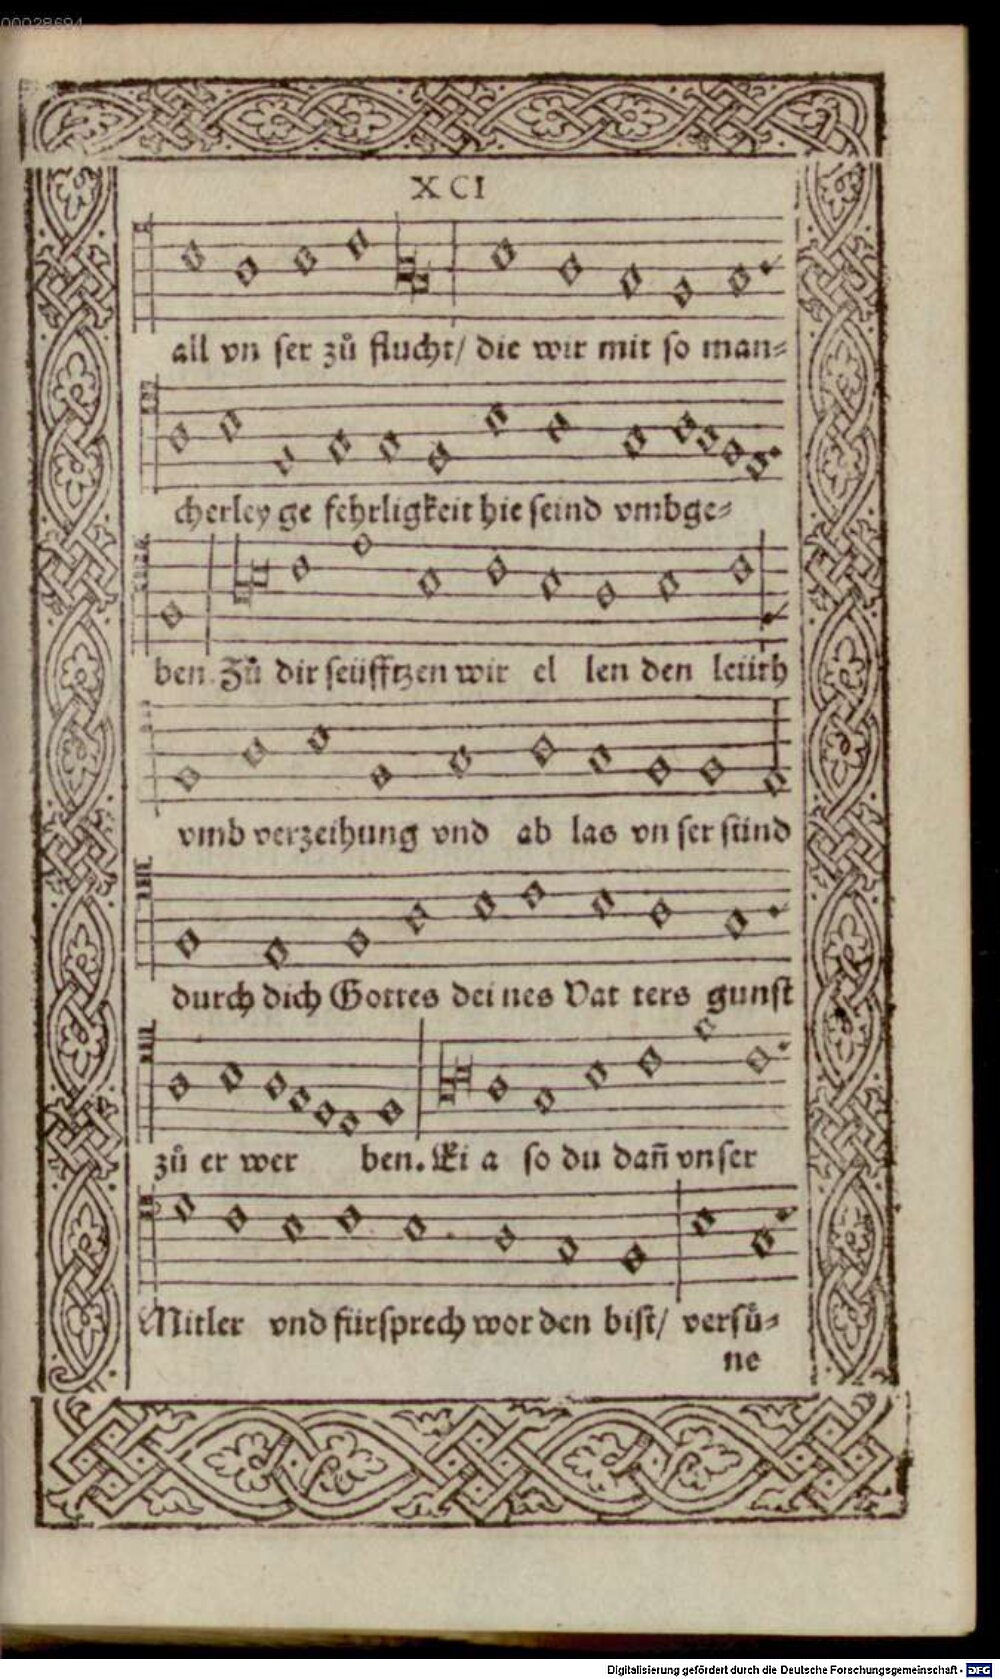 00028694
XCI
all vn ser zů flucht/ die wir mit so man⸗
cherley ge fehrligkeit hie seind vmbge⸗
ben. Zů dir seüfftzen wir el len den leüth
vmb verzeihung vnd ab las vn ser sünd
durch dich Gottes dei nes Vat ters gunst
zů er wer ben. Ei a so du dañ vnser
Mitler vnd fürsprech wor den bist/ versů⸗
ne
Digitalisierung gefördert durch die Deutsche Forschungsgemeinschaft - DFG